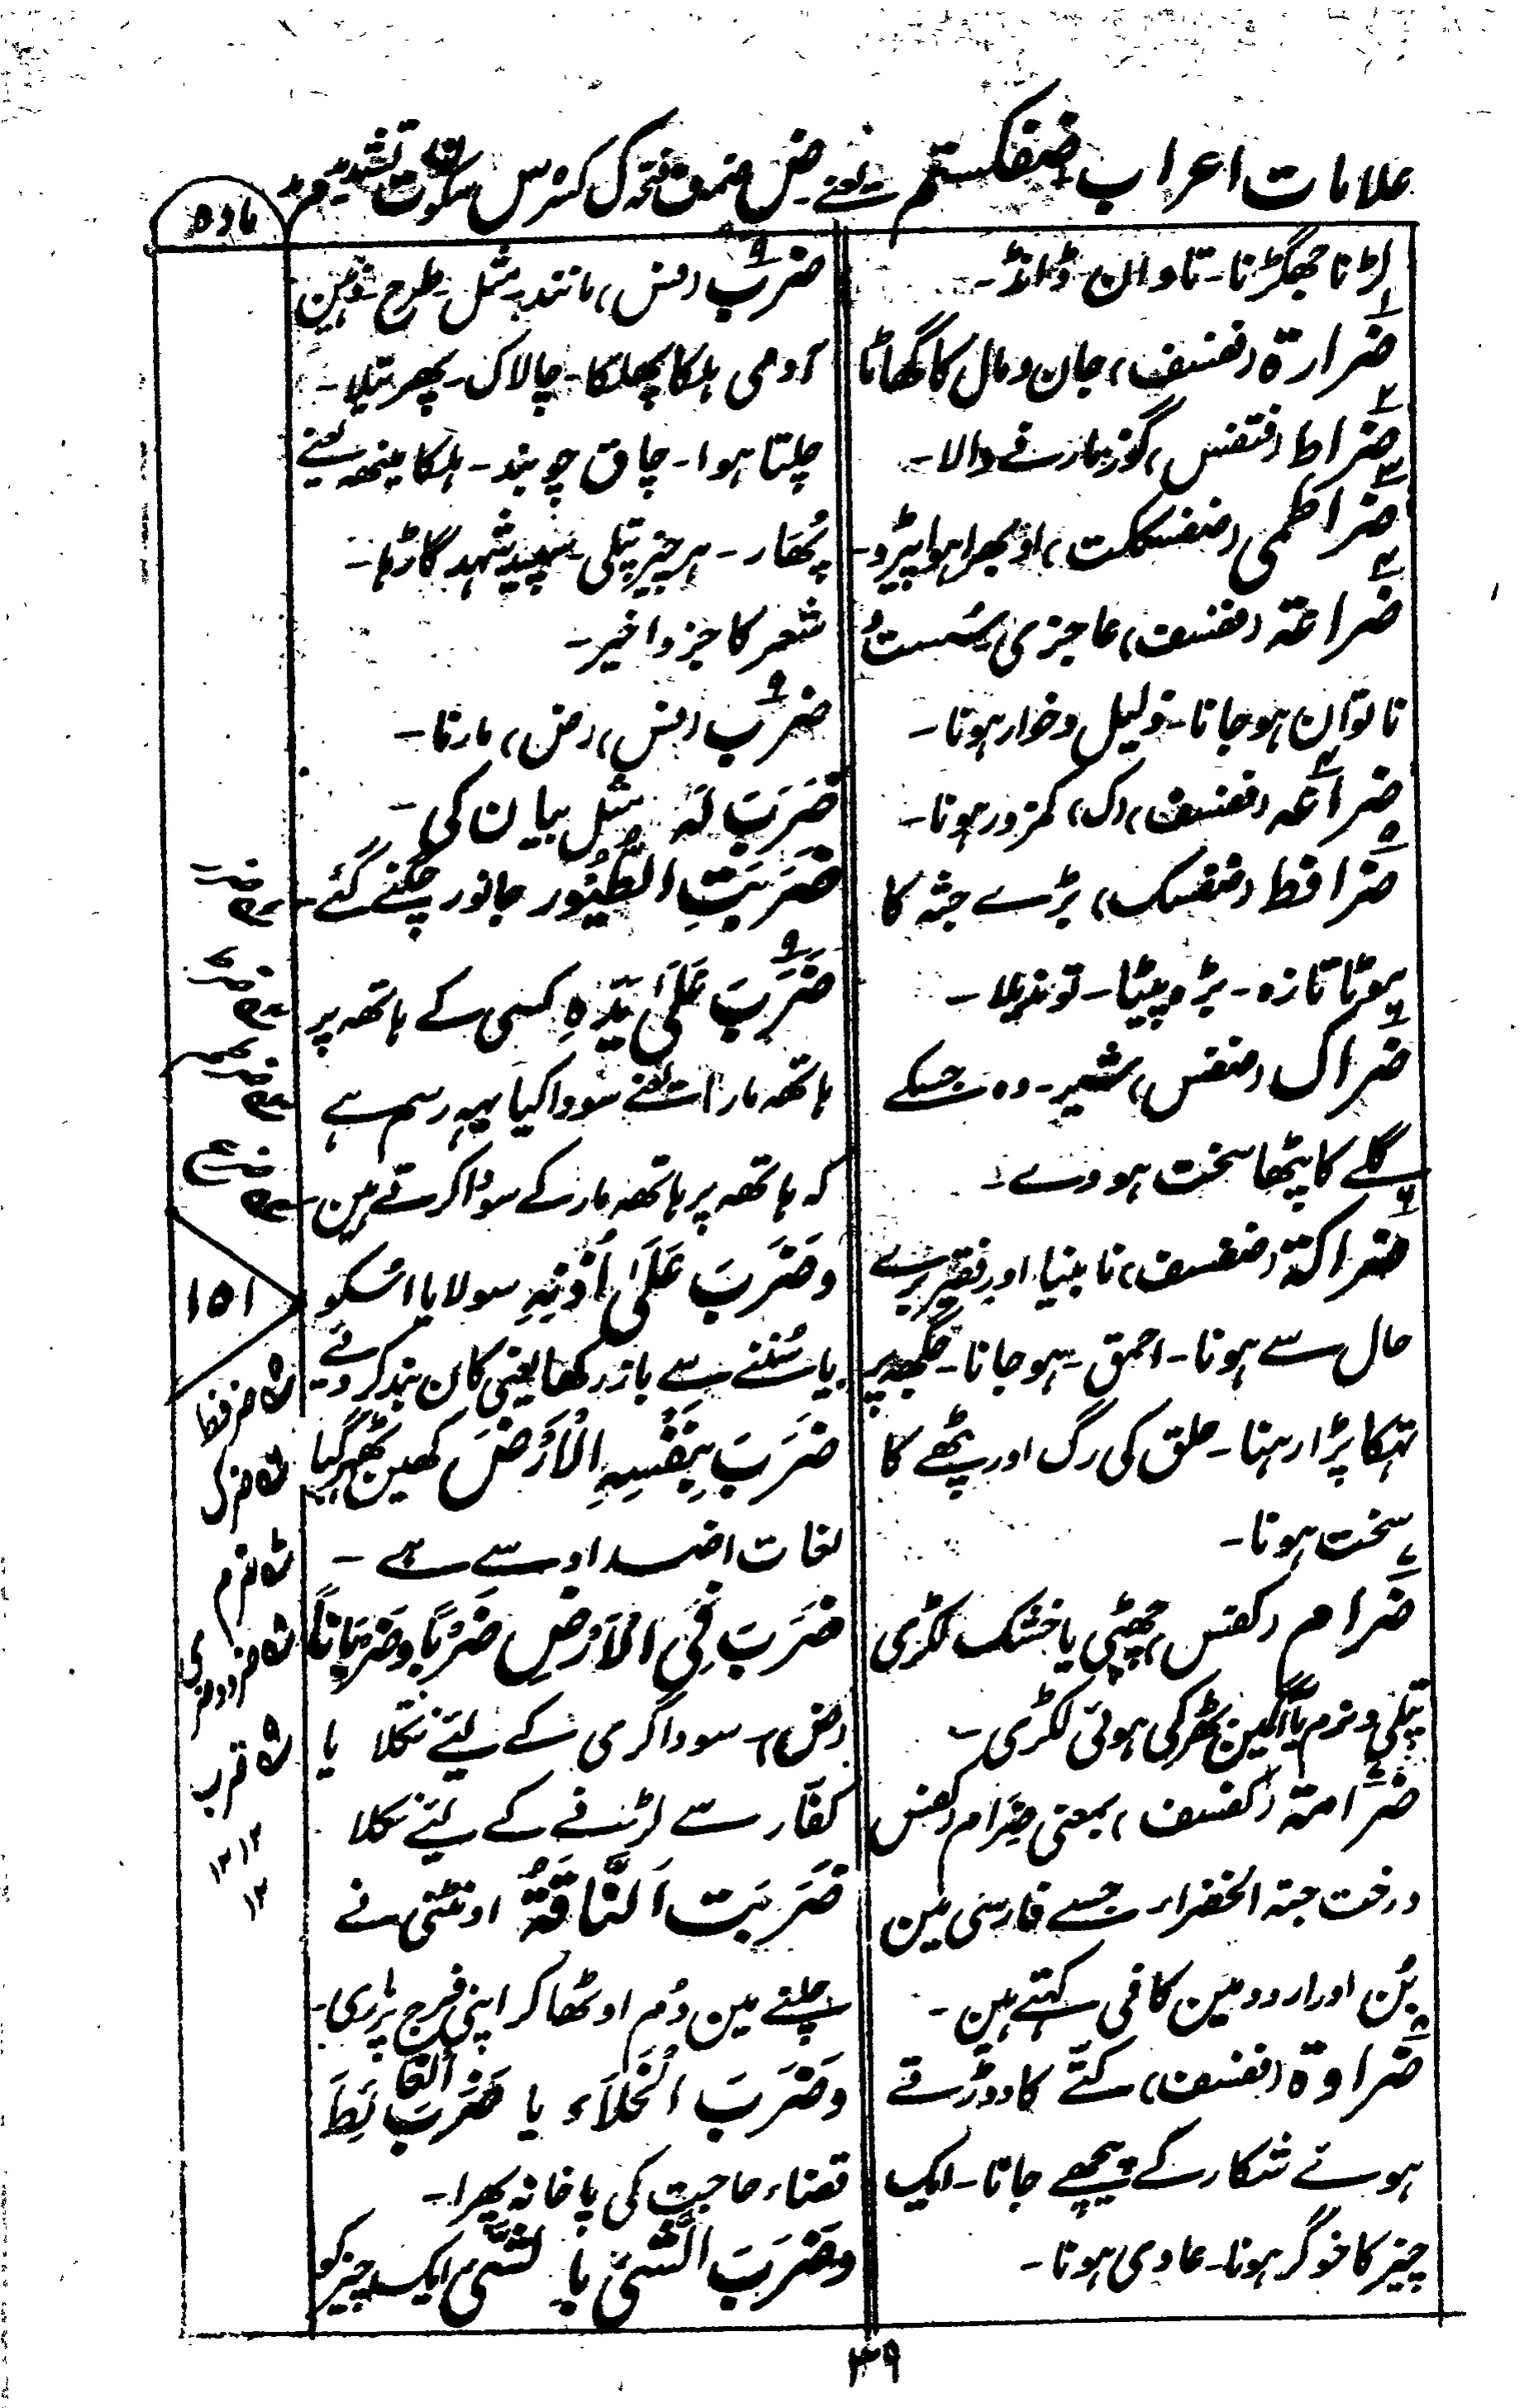 علامات اعراب ضفکستم یعنے ض ضمہ ف فتحہ ک کسرہ س سکون ت تشدید م مد
مادہ
لڑنا جھگڑنا۔ تاوان۔ ڈانڈ۔
ضرارۃ (فسف) جان و مال کا گھاٹا
ضراط (فتفس) گوز مارنے والا۔
ضراطمی (ضفسککت) اوبھرا ہوا پیڑو۔
ضراعۃ (فسف) عاجزی سست و
ناتوان ہو جانا۔ ذلیل و خوار ہونا۔
ضراعۃ (فسف) (ک) کمزور ہونا۔
ضرافط (ضفسک) بڑے جثہ کا
موٹا تازہ۔ بڑ پیٹا۔ توندیلا۔
ضراک (ضفس) شیر۔ وہ جسکے
گلے کا پٹھا سخت ہووے۔
ضراکۃ (ضفسف) نابینا اور فقیر برے
حال سے ہونا۔ احمق۔ ہو جانا۔ جگہ پر
تہکا پڑا رہنا۔ حلق کی رگ اور پٹھے کا
سخت ہونا۔
ضرام (کفس) چھپٹی یا خشک لکڑی
پتلی و نرم یا آگ مین بھڑکی ہوئی لکڑی۔
ضرامۃ (کفسف) بمعنی ضرام (کفس)
درخت حبۃ الخضراء جسے فارسی مین
بُن اور اردو مین کافی کہتے ہین۔
ضراوۃ (فسف) کتے کا دوڑتے
ہوئے شکار کے پیچھے جانا۔ ایک
چیز کا خوگر ہونا۔ عادی ہونا۔
ضرب (فس) مانند۔ مثل۔ طرح۔ ذہین
آدمی ہلکا پھلکا۔ چالاک۔ پھرتیلا۔
چلتا ہوا۔ چاق چوبند۔ ہلکا مینھ یعنے
پُھار۔ ہر چیز پتلی۔ سپید شہد گاڑہا۔
شعر کا جزو اخیر۔
ضرب (فس) (ض) مارنا۔
ضَرَبَ لَہٗ مثل بیان کی۔
ضَرَبَتِ الطُّیُور جانور چگنے گئے۔
ضَرَبَ عَلَیٰ یَدِہٖ کسی کے ہاتھ پر
ہاتھ مارا یعنے سودا کیا یہہ رسم ہے
کہ ہاتھ پر ہاتھ مار کے سودا کرتے ہین
وَضَرَبَ عَلَیٰ اُذُنِہٖ سولایا اسکو
یا سُننے سے باز رکھا یعنی کان بند کر دئے
ضَرَبَ بِنَفْسِہِ الْاَرْضَ کھین ٹھہر گیا
لغات اضداد سے ہے۔
ضَرَبَ فِی الْاَرْضِ ضَرْبًا وَضَرَبَانًا
(ض)۔ سوداگری کے لیئے نکلا یا
کفّار سے لڑنے کے لیئے نکلا
ضَرَبَت اَلنَّاقَةُ اونٹنی نے
چلنے مین دُم اوٹھا کر اپنی فرج پر ماری۔
وَضَرَبَ الْخَلَاءَ یا ضَرَبَ الْغَائِطَ
قضاء حاجت کی پاخانہ پھرا۔
وَضَرَبَ الشَّیْئَ بِالشَّیْئِ ایک چیز کو
۱۵۱
ضرفط
ضرک
ضرم
ضرب
۱۲ ۱۲
۱۲
۳۹